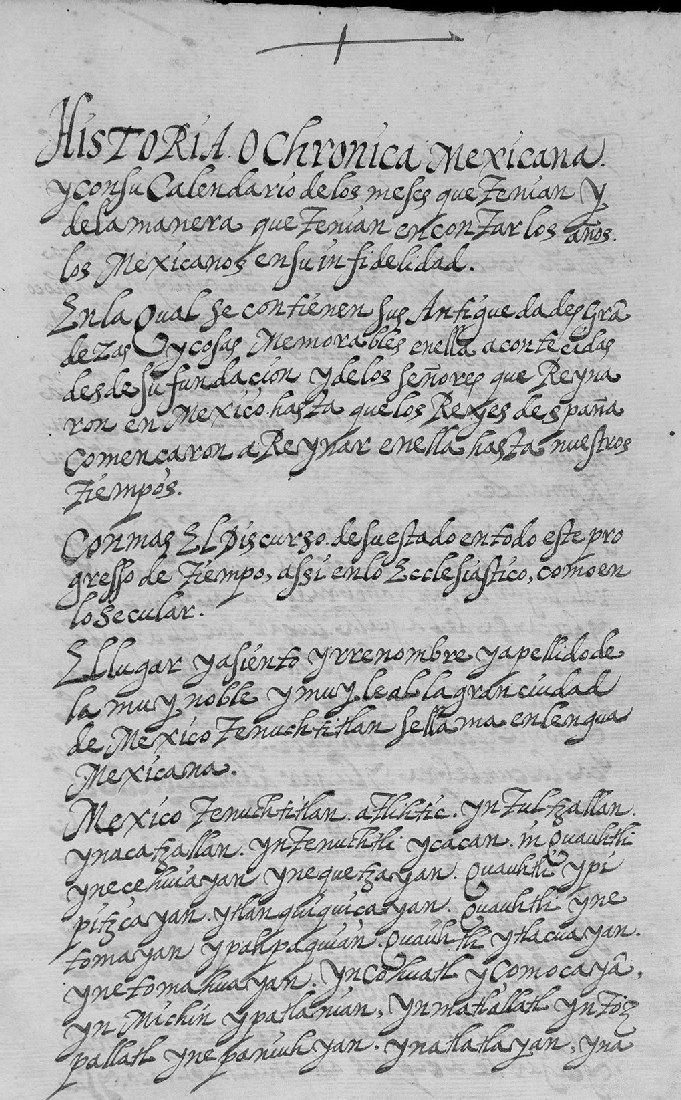 HISTORIA. O Chronica Mexicana.
y con su Calendario de los meses que Tenian y
de la manera que Tenian en conTar los años.
los Mexicanos en su infidelidad.
En la Qual se contienen sus Antiguedades Grã
dezas y cosas Memorables en ella acontecidas
desde su fundacion y de los señores que Reyna
ron en Mexico hasta que los Reyes despaña
Comencaron a Reynar en ella hasta nuestros
Tiempos.
Con mas El Discurso. de su estado en todo este pro
gresso de Tiempo, assi en lo Ecclesiastico, como en
lo secular.
El lugar y asiento y rrenombre y apellido de
la muy noble y muy leal la gran ciudad
de Mexico Tenuchtitlan se llama en lengua
Mexicana.
Mexico Tenuchtitlan. atlihtic. yn Tultzallan.
yn acatzallan. yn Tenuchtli ycacan. in Quauhtli
ynecehuiayan ynequetzayan. Quauhtli ypi
pitzcayan. ytlanquiquicayan. Quauhtli yne
tomayan ypahpaquian. Quauhtli ytlacuayan.
ynetomahuayan. yn Cohuatl yComocayã,
yn Michin ypatlanian, yn matlallatl yn toz
pallatl ynepaniuhyan. yn atlatlayan, yna